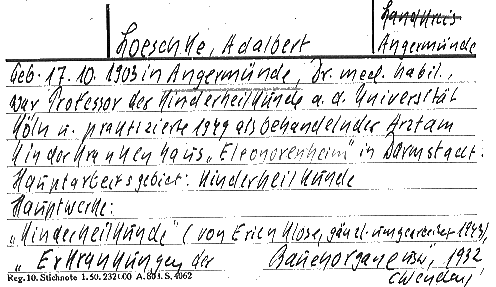 Landkreis
Loeschke, Adalbert
Angermünde
Geb. 17.10.1903 in Angermünde, Dr. med. habil.,
war Professor der Kinderheilkunde a. d. Universität
Köln u. praktizierte 1949 als behandelnder Arzt am
Kinderkrankenhaus „Eleonorenheim" in Darmstadt.
Hauptarbeitsgebiet: Kinderheilkunde
Hauptwerke:
„Kinderheilkunde" (von Erich Klose, gänzl. umgearbeitet 1943),
„Erkrankungen der
usw", 1932
Reg. 10. Stichnote 1. 50. 232100 A. 804. S. 4062